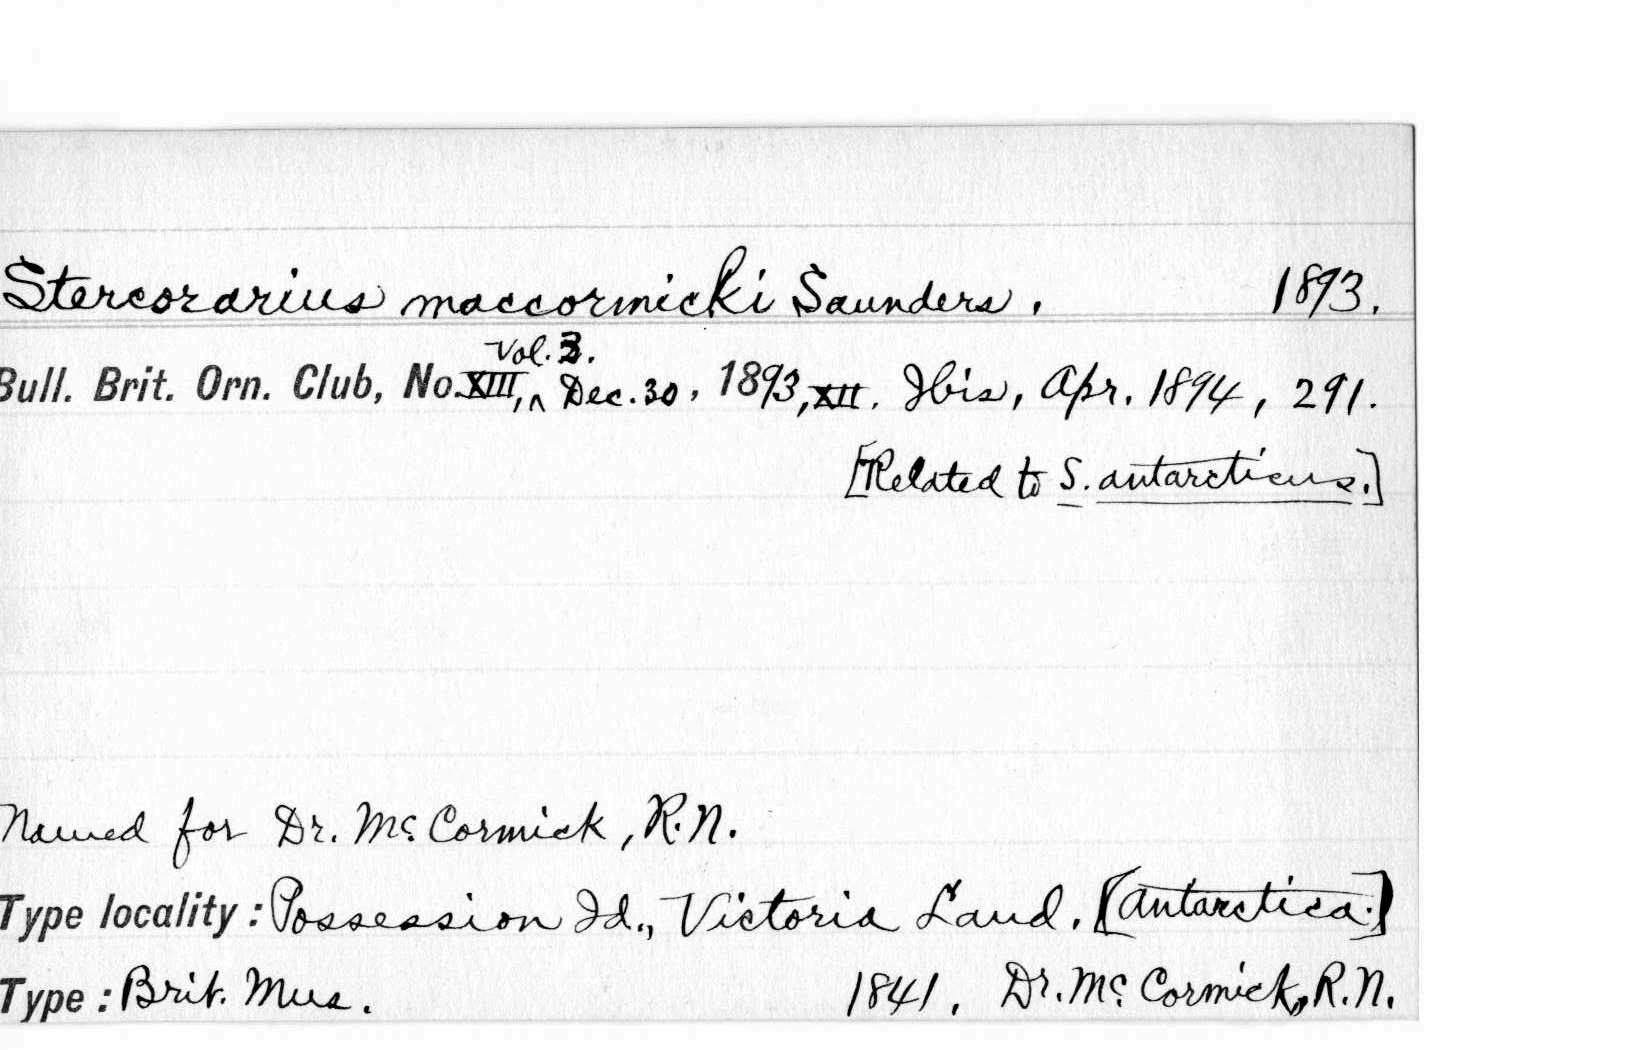 Stercorarius maccormicki Saunders. 1893.
Vol. 3.
Bull. Brit. Orn. Club, No. XIII, ^ Dec. 30, 1893, XII. Ibis, Apr. 1894, 291.
[Related to S. antarcticus.]
Named for Dr. McCormick, R.N.
Type locality: Possession Id., Victoria Land. [Antarctica.]
Type: Brit. Mus. 1841. Dr. McCormick, R.N.